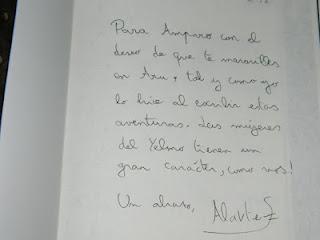 Para Amparo con el
deseo de que te maravilles
con Aru, tal y como yo
lo hice al escribir estas
aventuras. Las mujeres
del Yelmo tienen un
gran carácter, como vos!
Un abrazo,